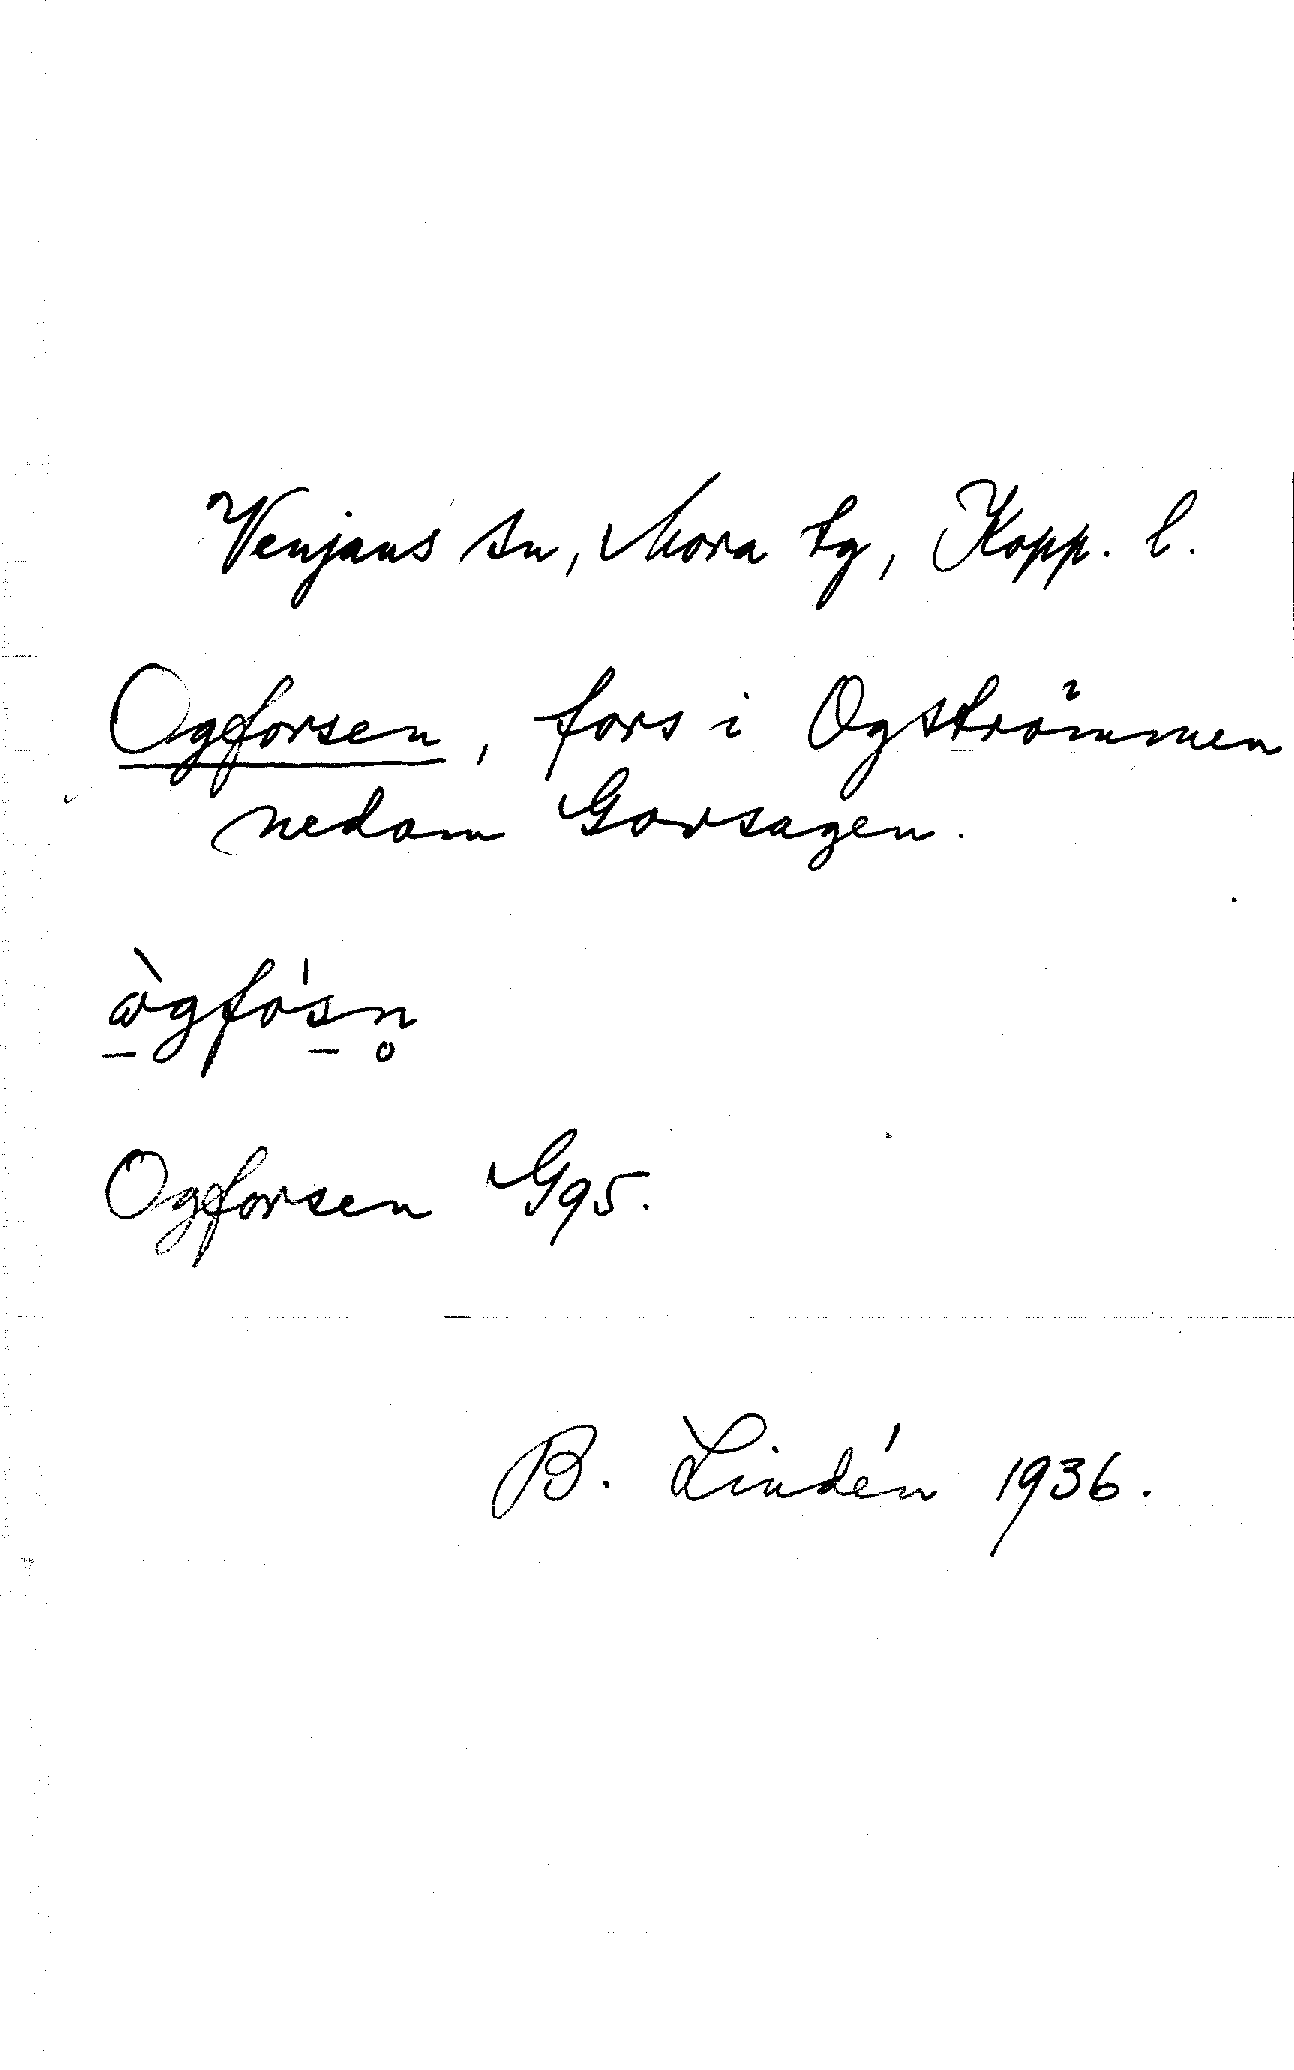 Venjans sn, Mora tg, Kopp. l.
Ogforsen, fors i Ogströmmen
nedom Gorsagen.
Ogforsen G95.
B. Lindén 1936.